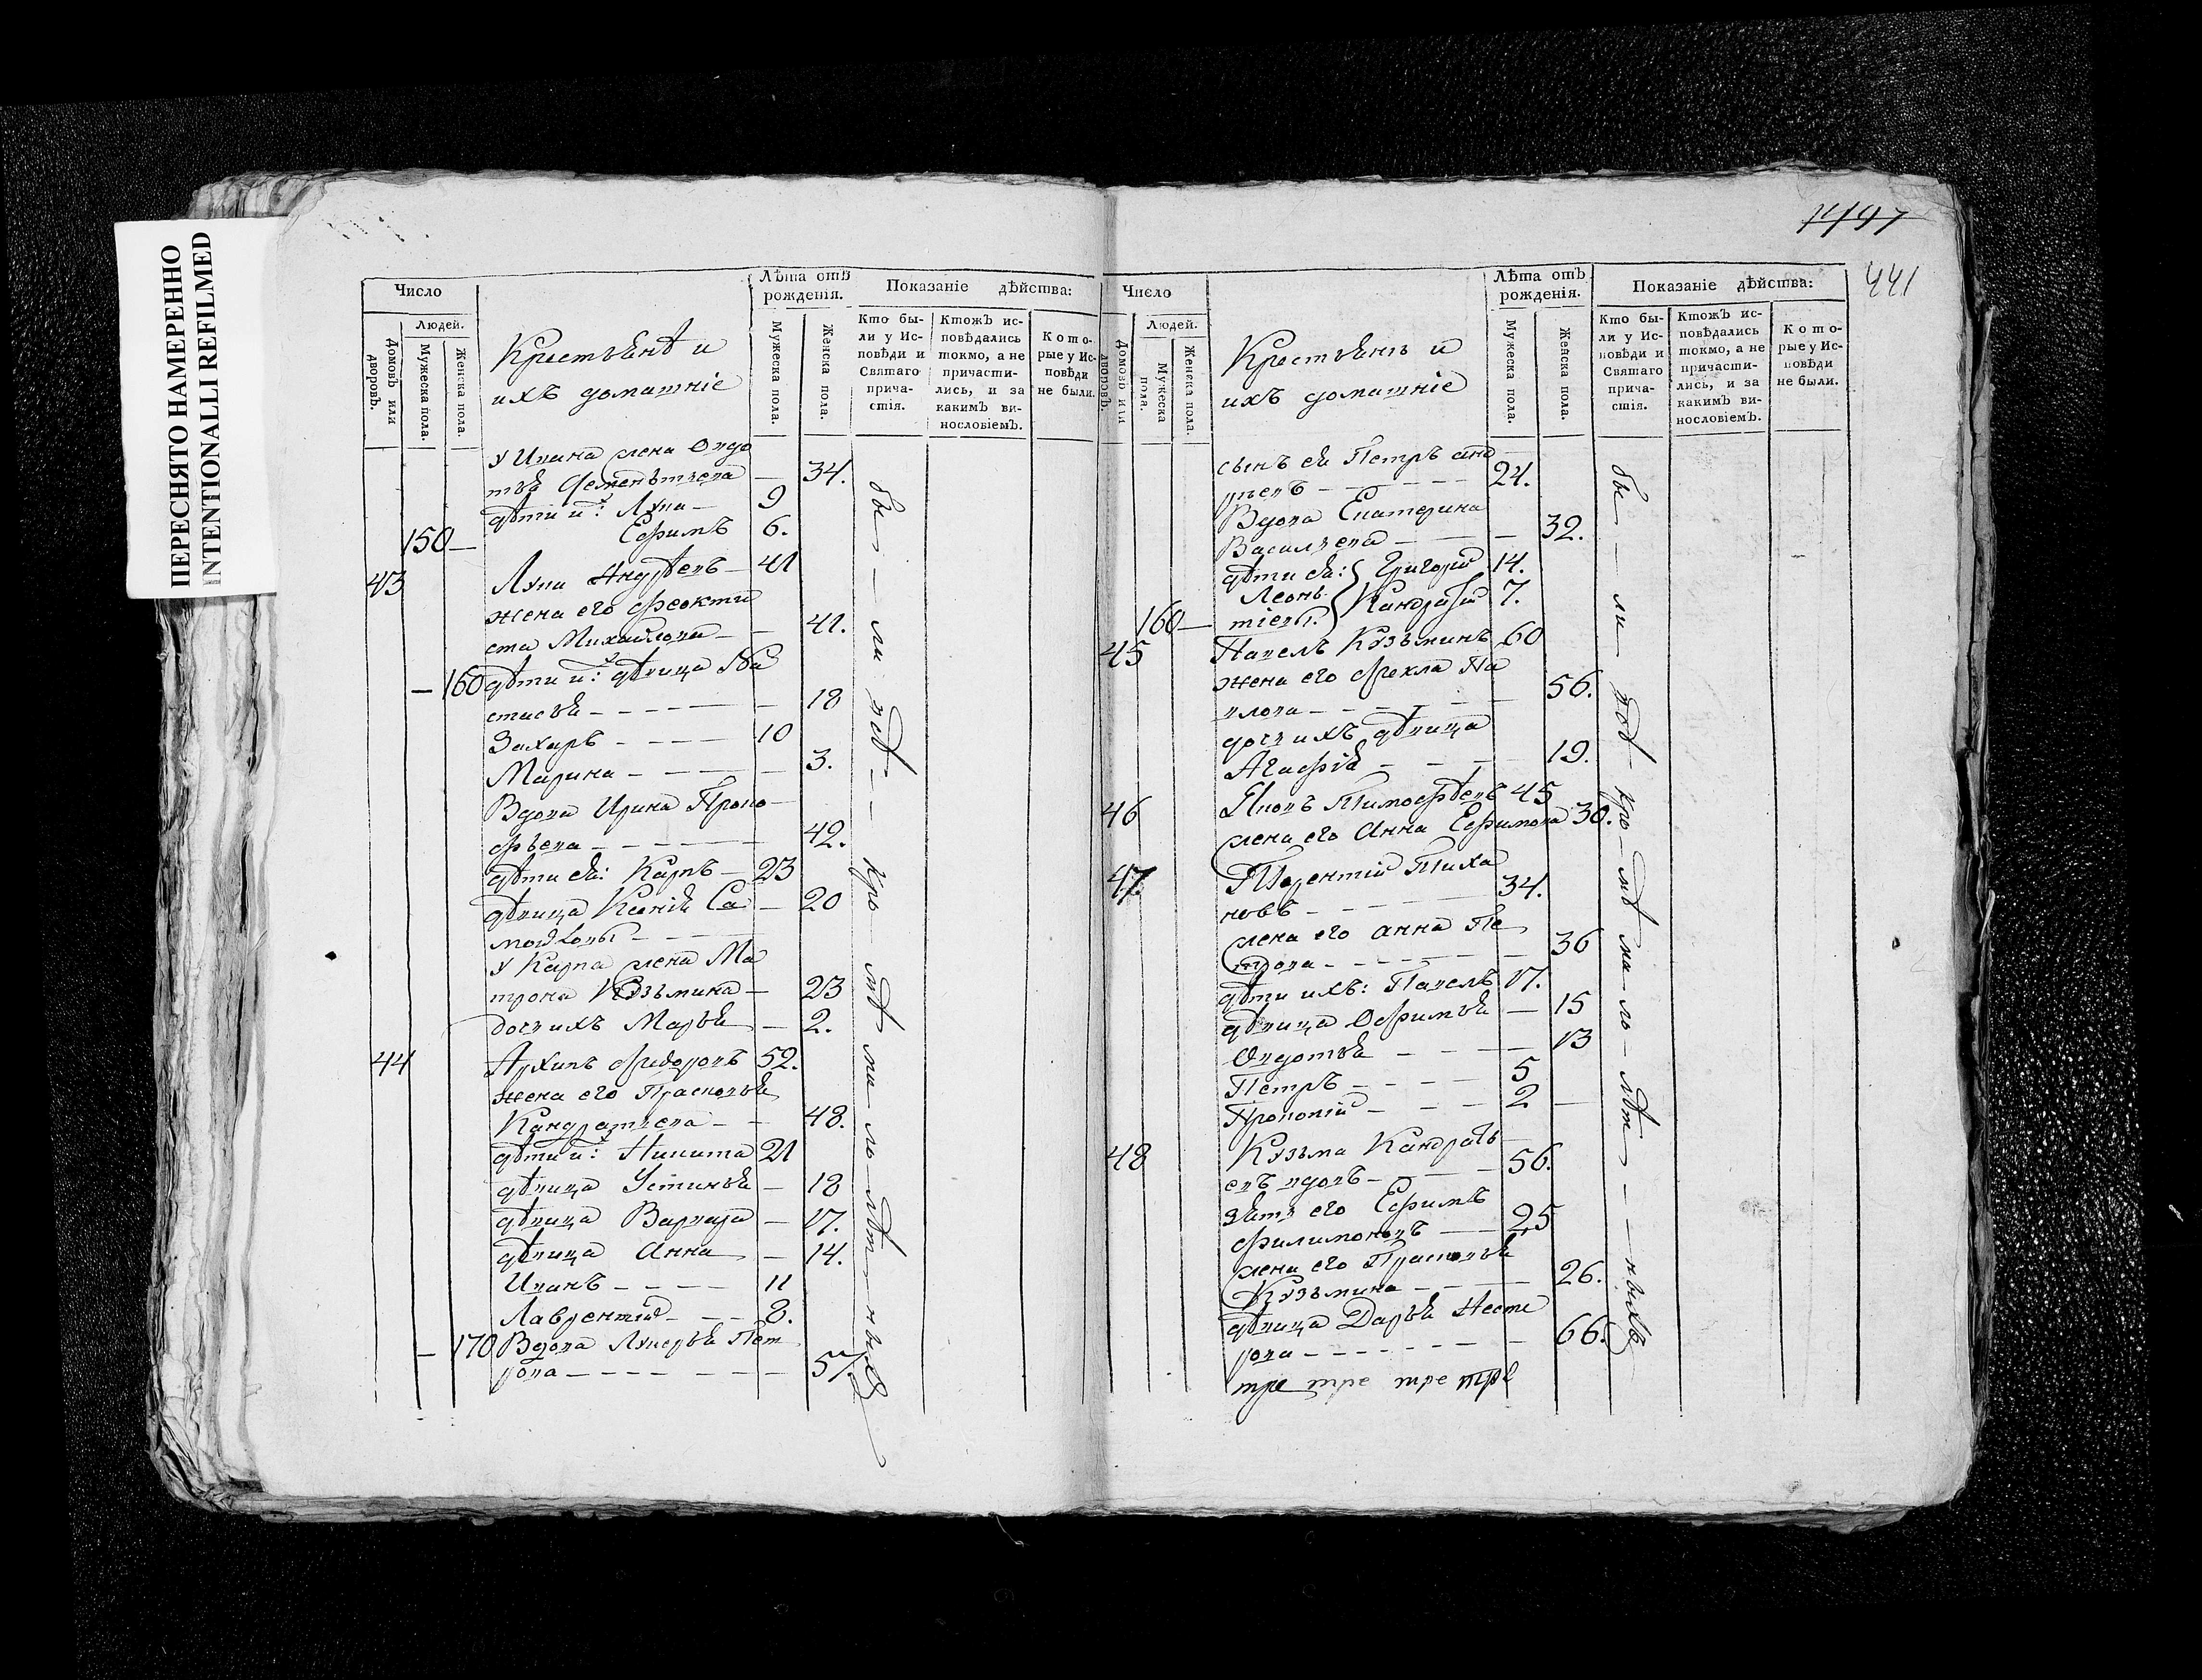 ПЕРЕСНЯТО НАМЕРЕННО
INTENTIONALLI REFILMED
1447
441
Число
Людей.
Домовъ или дворовъ.
Мужеска пола.
Женска пола.
Крестьянѣ и
ихъ домашніе
Лѣта отъ
рожденія.
Мужеска пола.
Женска пола.
Показаніе дѣйства:
Кто бы-
ли у Ис-
повѣди и
Святаго
прича-
стія.
Ктожъ ис-
повѣдались
токмо, а не
причасти-
лись, и за
какимъ ви-
нословіемъ.
Кото-
рые у Ис-
повѣди
не были.
у Ивана жена Овдо
тья Дементьева — 34.
дѣти их: Лука — 9
150 — Ефимъ 6.
43 Лука Андрѣевъ — 41
жена его Феокти
ста Михайлова — 41.
— 160 дѣти их: дѣвица На
стасья — 18
Захаръ — 10
Марина — 3.
Вдова Ирина Проко
фьева — 42.
дѣти ея: Карпъ — 23
дѣвица Ксенія Са — 20
мойловы —
у Карпа жена Ма
трона Кузьмина — 23
дочь ихъ Марья — 2.
44 Архипъ Федоровъ 52.
жена его Прасковья
Кандратьева — 48.
дѣти их: Никита 21
дѣвица Устинья — 18
дѣвица Варвара — 17.
дѣвица Анна — 14.
Иванъ — 11
Лаврентій — 8.
— 170 Вдова Лукерья Пет
рова — 57.
бы — ли всѣ — кро мѣ ма — ло — лѣт — ныхъ
Число
Людей.
Домовъ или дворовъ.
Мужеска пола.
Женска пола.
Крестьянъ и
ихъ домашніе
Лѣта отъ
рожденія.
Мужеска пола.
Женска пола.
Показаніе дѣйства:
Кто бы-
ли у Ис-
повѣди и
Святаго
прича-
стія.
Ктожъ ис-
повѣдались
токмо, а не
причасти-
лись, и за
какимъ ви-
нословіемъ.
Кото-
рые у Ис-
повѣди
не были.
сынъ ея Петръ анд
реевъ — 24.
Вдова Екатерина
Васильева — 32.
дѣти ея: Григорій 14.
Леонь
160 — тіевы. Кандратій 7.
45 Павелъ Кузьминъ 60
жена его Фекла Па
влова — 56.
дочь ихъ дѣвица
Агафія — 19.
46 Тимофѣевъ 45
жена его Анна Ефимова 30.
47. Терентій Тиха
новъ — 34.
жена его анна Пе
трова — 36
дѣти ихъ: Павелъ 17.
дѣвица Офимья — 15
Овдотья — 13
Петръ — 5
Прокопій — 2 —
48 Кузьма Кандрать
евъ вдовъ — 56.
зять его Ефимъ
филимоновъ — 25
жена его Прасковья
Кузьмина — 26.
дѣвица Дарья Несте
рова — 66.
тре тре тре тре
бы — ли всѣ — кро — мѣ ма — ло — лѣт — ныхъ